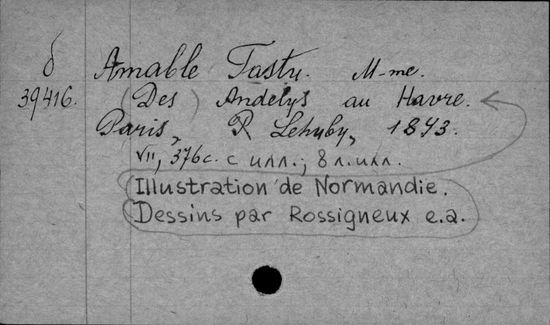 б
39416.
Amable Tastu. M-me.
(Des) Andelys au Havre.
Paris, P. Lehuby, 1843.
VII, 376 с. с илл.; 8 л. илл.
Illustration de Normandie.
Dessins par Rossigneux e.a.